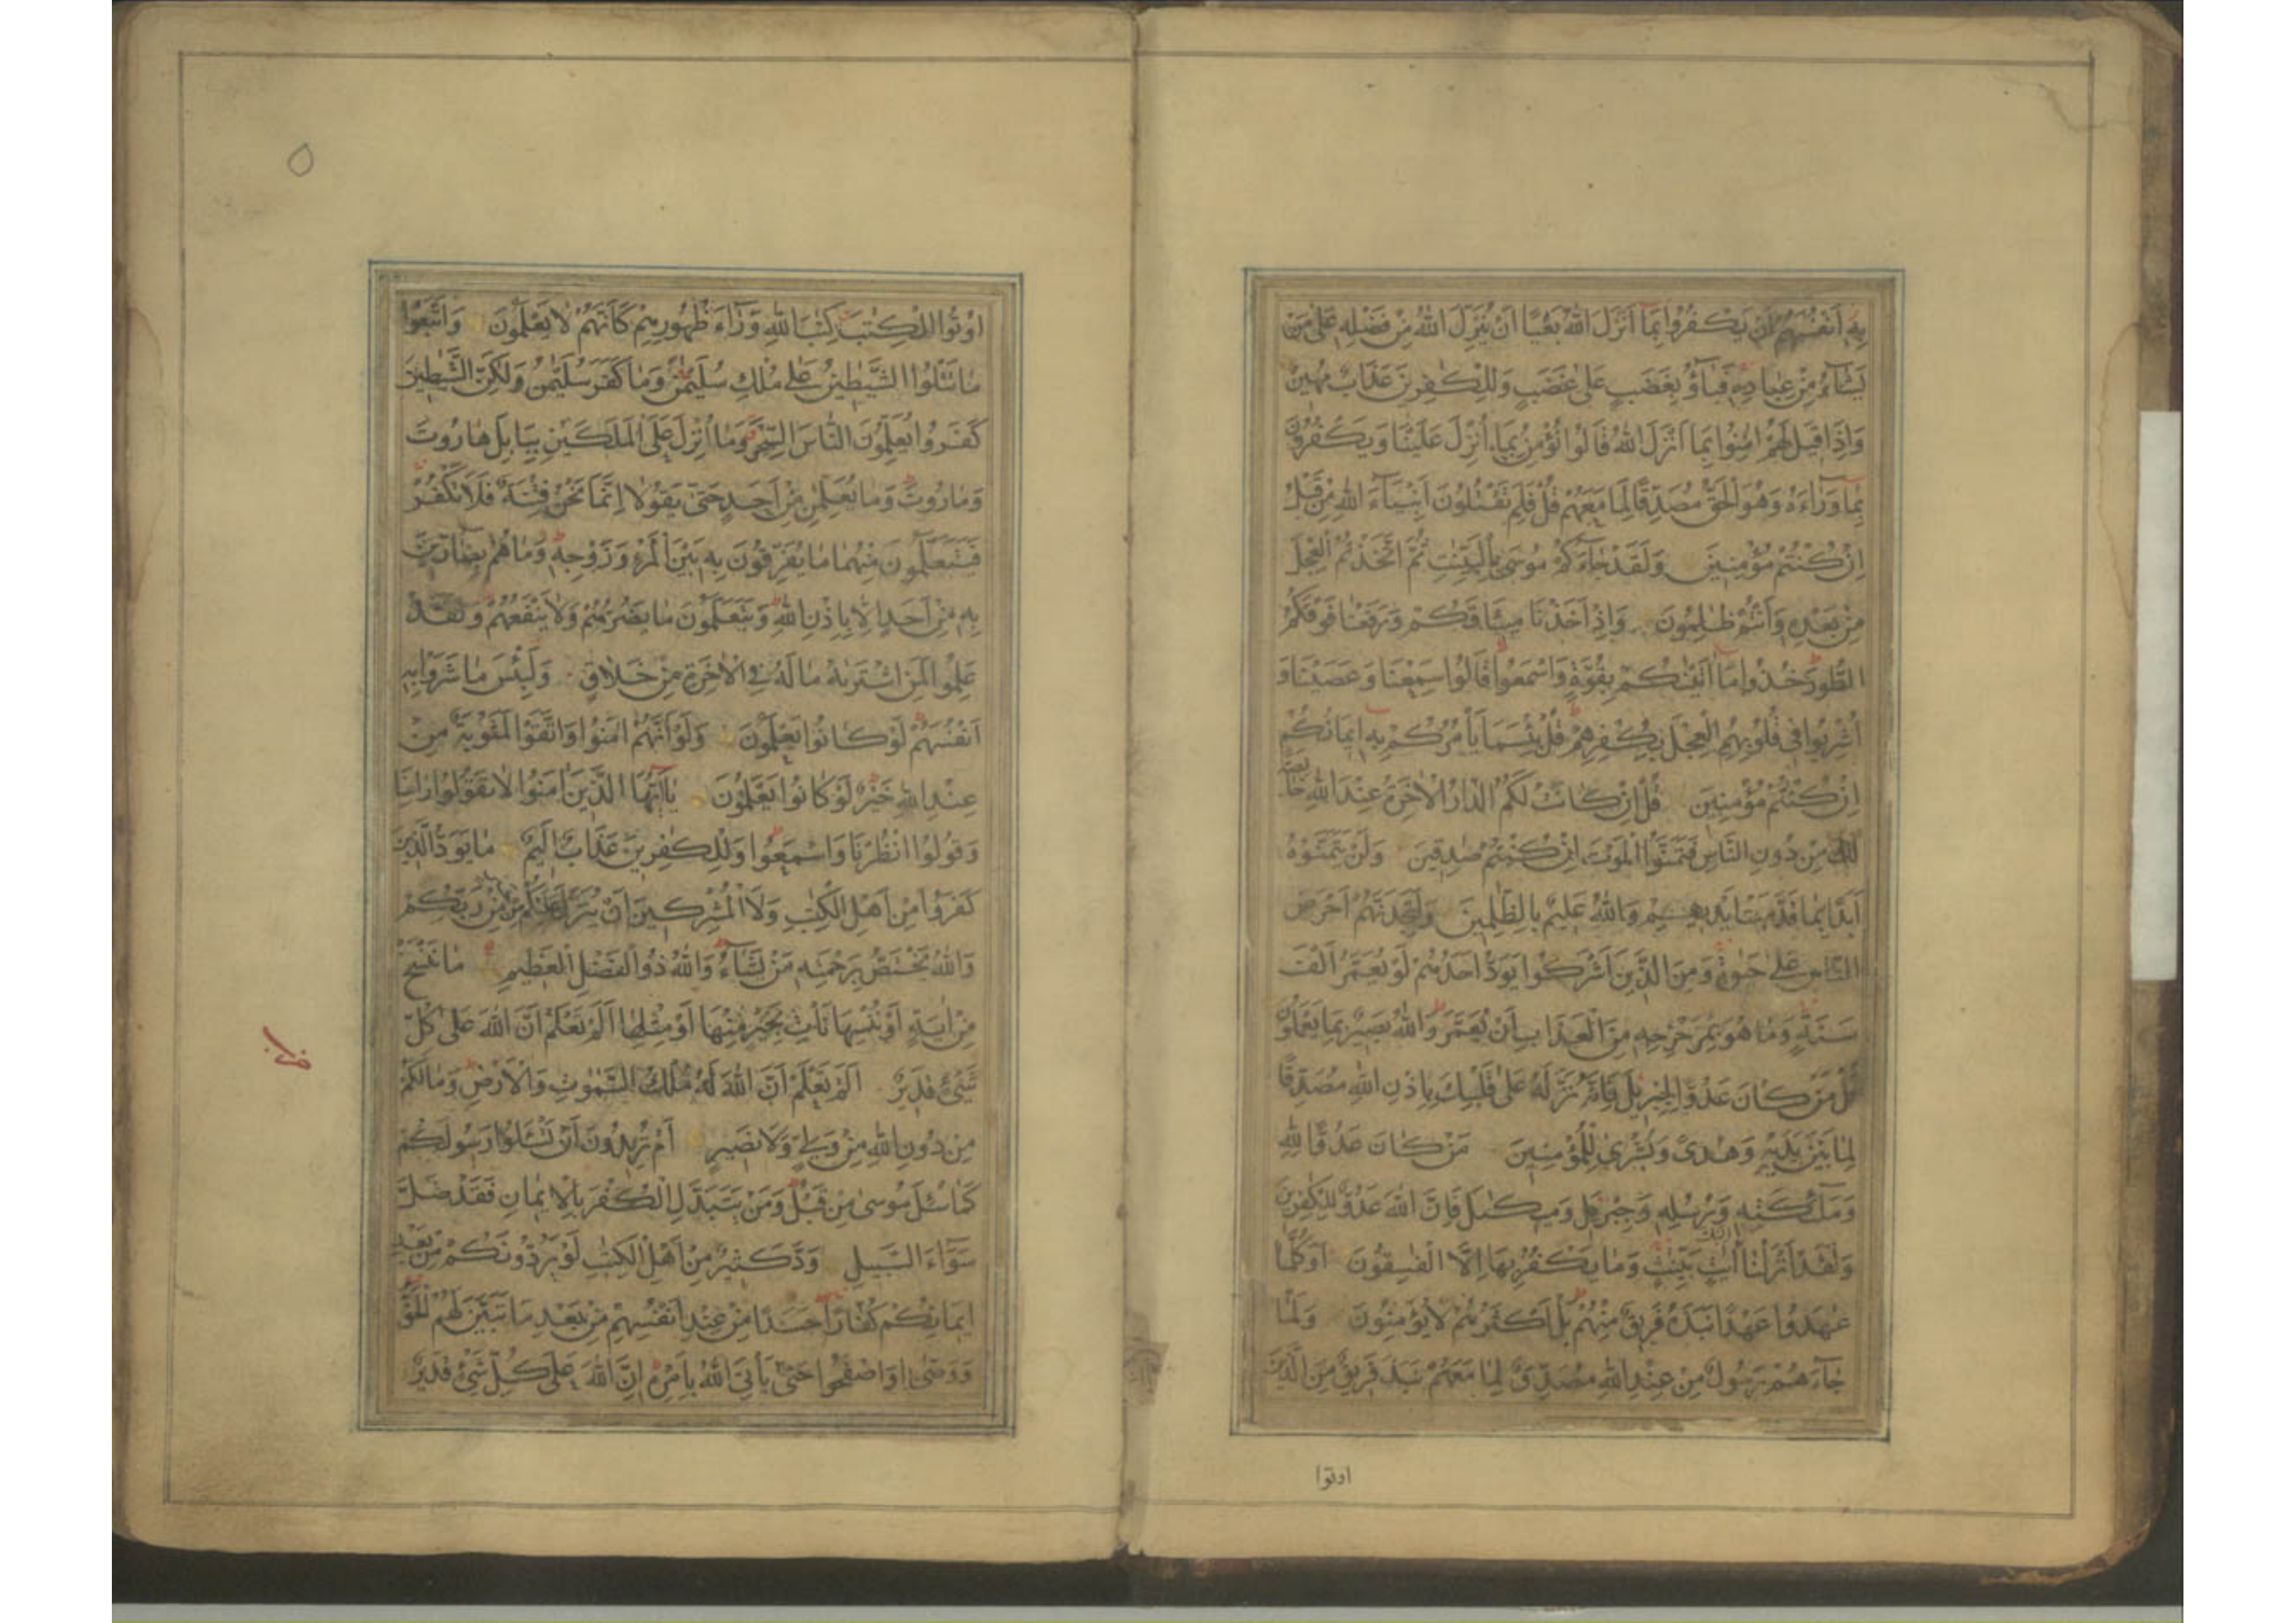 بِهِ أَنْفُسَهُمْ أَنْ يَكْفُرُوا بِمَا أَنْزَلَ اللهُ بَغْيًا أَنْ يُنَزِّلَ اللهُ مِنْ فَضْلِهِ عَلَى مَنْ
يَشَاءُ مِنْ عِبَادِهِ فَبَاؤُ بِغَضَبٍ عَلَى غَضَبٍ وَلِلْكٰفِرِينَ عَذَابٌ مُهِينٌ
وَإِذَا قِيلَ لَهُمْ اٰمِنُوا بِمَا أَنْزَلَ اللهُ قَالُوا نُؤْمِنُ بِمَا أُنْزِلَ عَلَيْنَا وَيَكْفُرُونَ
بِمَا وَرَاءَهُ وَهُوَ الْحَقُّ مُصَدِّقًا لِمَا مَعَهُمْ قُلْ فَلِمَ تَقْتُلُونَ أَنْبِيَاءَ اللهِ مِنْ قَبْلُ
إِنْ كُنْتُمْ مُؤْمِنِينَ وَلَقَدْ جَاءَكُمْ مُوسَى بِالْبَيِّنٰتِ ثُمَّ اتَّخَذْتُمُ الْعِجْلَ
مِنْ بَعْدِهِ وَأَنْتُمْ ظٰلِمُونَ وَإِذْ أَخَذْنَا مِيثَاقَكُمْ وَرَفَعْنَا فَوْقَكُمُ
الطُّورَ خُذُوا مَا اٰتَيْنٰكُمْ بِقُوَّةٍ وَاسْمَعُوا قَالُوا سَمِعْنَا وَعَصَيْنَا وَ
أُشْرِبُوا فِي قُلُوبِهِمُ الْعِجْلَ بِكُفْرِهِمْ قُلْ بِئْسَمَا يَأْمُرُكُمْ بِهِ إِيمَانُكُمْ
إِنْ كُنْتُمْ مُؤْمِنِينَ قُلْ إِنْ كَانَتْ لَكُمُ الدَّارُ الْاٰخِرَةُ عِنْدَ اللهِ خَالِصَةً
مِنْ دُونِ النَّاسِ فَتَمَنَّوُا الْمَوْتَ إِنْ كُنْتُمْ صٰدِقِينَ وَلَنْ يَتَمَنَّوْهُ
أَبَدًا بِمَا قَدَّمَتْ أَيْدِيهِمْ وَاللهُ عَلِيمٌ بِالظّٰلِمِينَ وَلَتَجِدَنَّهُمْ أَحْرَصَ
النَّاسِ عَلَى حَيٰوةٍ وَمِنَ الَّذِينَ أَشْرَكُوا يَوَدُّ أَحَدُهُمْ لَوْ يُعَمَّرُ أَلْفَ
سَنَةٍ وَمَا هُوَ بِمُزَحْزِحِهِ مِنَ الْعَذَابِ أَنْ يُعَمَّرَ وَاللهُ بَصِيرٌ بِمَا يَعْمَلُونَ
قُلْ مَنْ كَانَ عَدُوًّا لِجِبْرِيلَ فَإِنَّهُ نَزَّلَهُ عَلَى قَلْبِكَ بِإِذْنِ اللهِ مُصَدِّقًا
لِمَا بَيْنَ يَدَيْهِ وَهُدًى وَبُشْرٰى لِلْمُؤْمِنِينَ مَنْ كَانَ عَدُوًّا لِلهِ
وَمَلٰئِكَتِهِ وَرُسُلِهِ وَجِبْرِيلَ وَمِيكٰيلَ فَإِنَّ اللهَ عَدُوٌّ لِلْكٰفِرِينَ
وَلَقَدْ أَنْزَلْنَا إِلَيْكَ اٰيٰتٍ بَيِّنٰتٍ وَمَا يَكْفُرُ بِهَا إِلَّا الْفٰسِقُونَ أَوَكُلَّمَا
عٰهَدُوا عَهْدًا نَبَذَهُ فَرِيقٌ مِنْهُمْ بَلْ أَكْثَرُهُمْ لَا يُؤْمِنُونَ وَلَمَّا
جَاءَهُمْ رَسُولٌ مِنْ عِنْدِ اللهِ مُصَدِّقٌ لِمَا مَعَهُمْ نَبَذَ فَرِيقٌ مِنَ الَّذِينَ
اوتوا
٥
أُوتُوا الْكِتٰبَ كِتٰبَ اللهِ وَرَاءَ ظُهُورِهِمْ كَأَنَّهُمْ لَا يَعْلَمُونَ وَاتَّبَعُوا
مَا تَتْلُوا الشَّيٰطِينُ عَلَى مُلْكِ سُلَيْمٰنَ وَمَا كَفَرَ سُلَيْمٰنُ وَلٰكِنَّ الشَّيٰطِينَ
كَفَرُوا يُعَلِّمُونَ النَّاسَ السِّحْرَ وَمَا أُنْزِلَ عَلَى الْمَلَكَيْنِ بِبَابِلَ هَارُوتَ
وَمَارُوتَ وَمَا يُعَلِّمٰنِ مِنْ أَحَدٍ حَتّٰى يَقُولَا إِنَّمَا نَحْنُ فِتْنَةٌ فَلَا تَكْفُرْ
فَيَتَعَلَّمُونَ مِنْهُمَا مَا يُفَرِّقُونَ بِهِ بَيْنَ الْمَرْءِ وَزَوْجِهِ وَمَا هُمْ بِضَارِّينَ
بِهِ مِنْ أَحَدٍ إِلَّا بِإِذْنِ اللهِ وَيَتَعَلَّمُونَ مَا يَضُرُّهُمْ وَلَا يَنْفَعُهُمْ وَلَقَدْ
عَلِمُوا لَمَنِ اشْتَرٰيهُ مَا لَهُ فِي الْاٰخِرَةِ مِنْ خَلَاقٍ وَلَبِئْسَ مَا شَرَوْا بِهِ
أَنْفُسَهُمْ لَوْ كَانُوا يَعْلَمُونَ وَلَوْ أَنَّهُمْ اٰمَنُوا وَاتَّقَوْا لَمَثُوبَةٌ مِنْ
عِنْدِ اللهِ خَيْرٌ لَوْ كَانُوا يَعْلَمُونَ يَا أَيُّهَا الَّذِينَ اٰمَنُوا لَا تَقُولُوا رَاعِنَا
وَقُولُوا انْظُرْنَا وَاسْمَعُوا وَلِلْكٰفِرِينَ عَذَابٌ أَلِيمٌ مَا يَوَدُّ الَّذِينَ
كَفَرُوا مِنْ أَهْلِ الْكِتٰبِ وَلَا الْمُشْرِكِينَ أَنْ يُنَزَّلَ عَلَيْكُمْ مِنْ رَبِّكُمْ
وَاللهُ يَخْتَصُّ بِرَحْمَتِهِ مَنْ يَشَاءُ وَاللهُ ذُو الْفَضْلِ الْعَظِيمِ مَا نَنْسَخْ
مِنْ اٰيَةٍ أَوْ نُنْسِهَا نَأْتِ بِخَيْرٍ مِنْهَا أَوْ مِثْلِهَا أَلَمْ تَعْلَمْ أَنَّ اللهَ عَلَى كُلِّ
شَيْءٍ قَدِيرٌ أَلَمْ تَعْلَمْ أَنَّ اللهَ لَهُ مُلْكُ السَّمٰوٰتِ وَالْأَرْضِ وَمَا لَكُمْ
مِنْ دُونِ اللهِ مِنْ وَلِيٍّ وَلَا نَصِيرٍ أَمْ تُرِيدُونَ أَنْ تَسْئَلُوا رَسُولَكُمْ
كَمَا سُئِلَ مُوسٰى مِنْ قَبْلُ وَمَنْ يَتَبَدَّلِ الْكُفْرَ بِالْإِيمَانِ فَقَدْ ضَلَّ
سَوَاءَ السَّبِيلِ وَدَّ كَثِيرٌ مِنْ أَهْلِ الْكِتٰبِ لَوْ يَرُدُّونَكُمْ مِنْ بَعْدِ
إِيمَانِكُمْ كُفَّارًا حَسَدًا مِنْ عِنْدِ أَنْفُسِهِمْ مِنْ بَعْدِ مَا تَبَيَّنَ لَهُمُ الْحَقُّ
وَاصْفَحُوا حَتّٰى يَأْتِيَ اللهُ بِأَمْرِهِ إِنَّ اللهَ عَلَى كُلِّ شَيْءٍ قَدِيرٌ